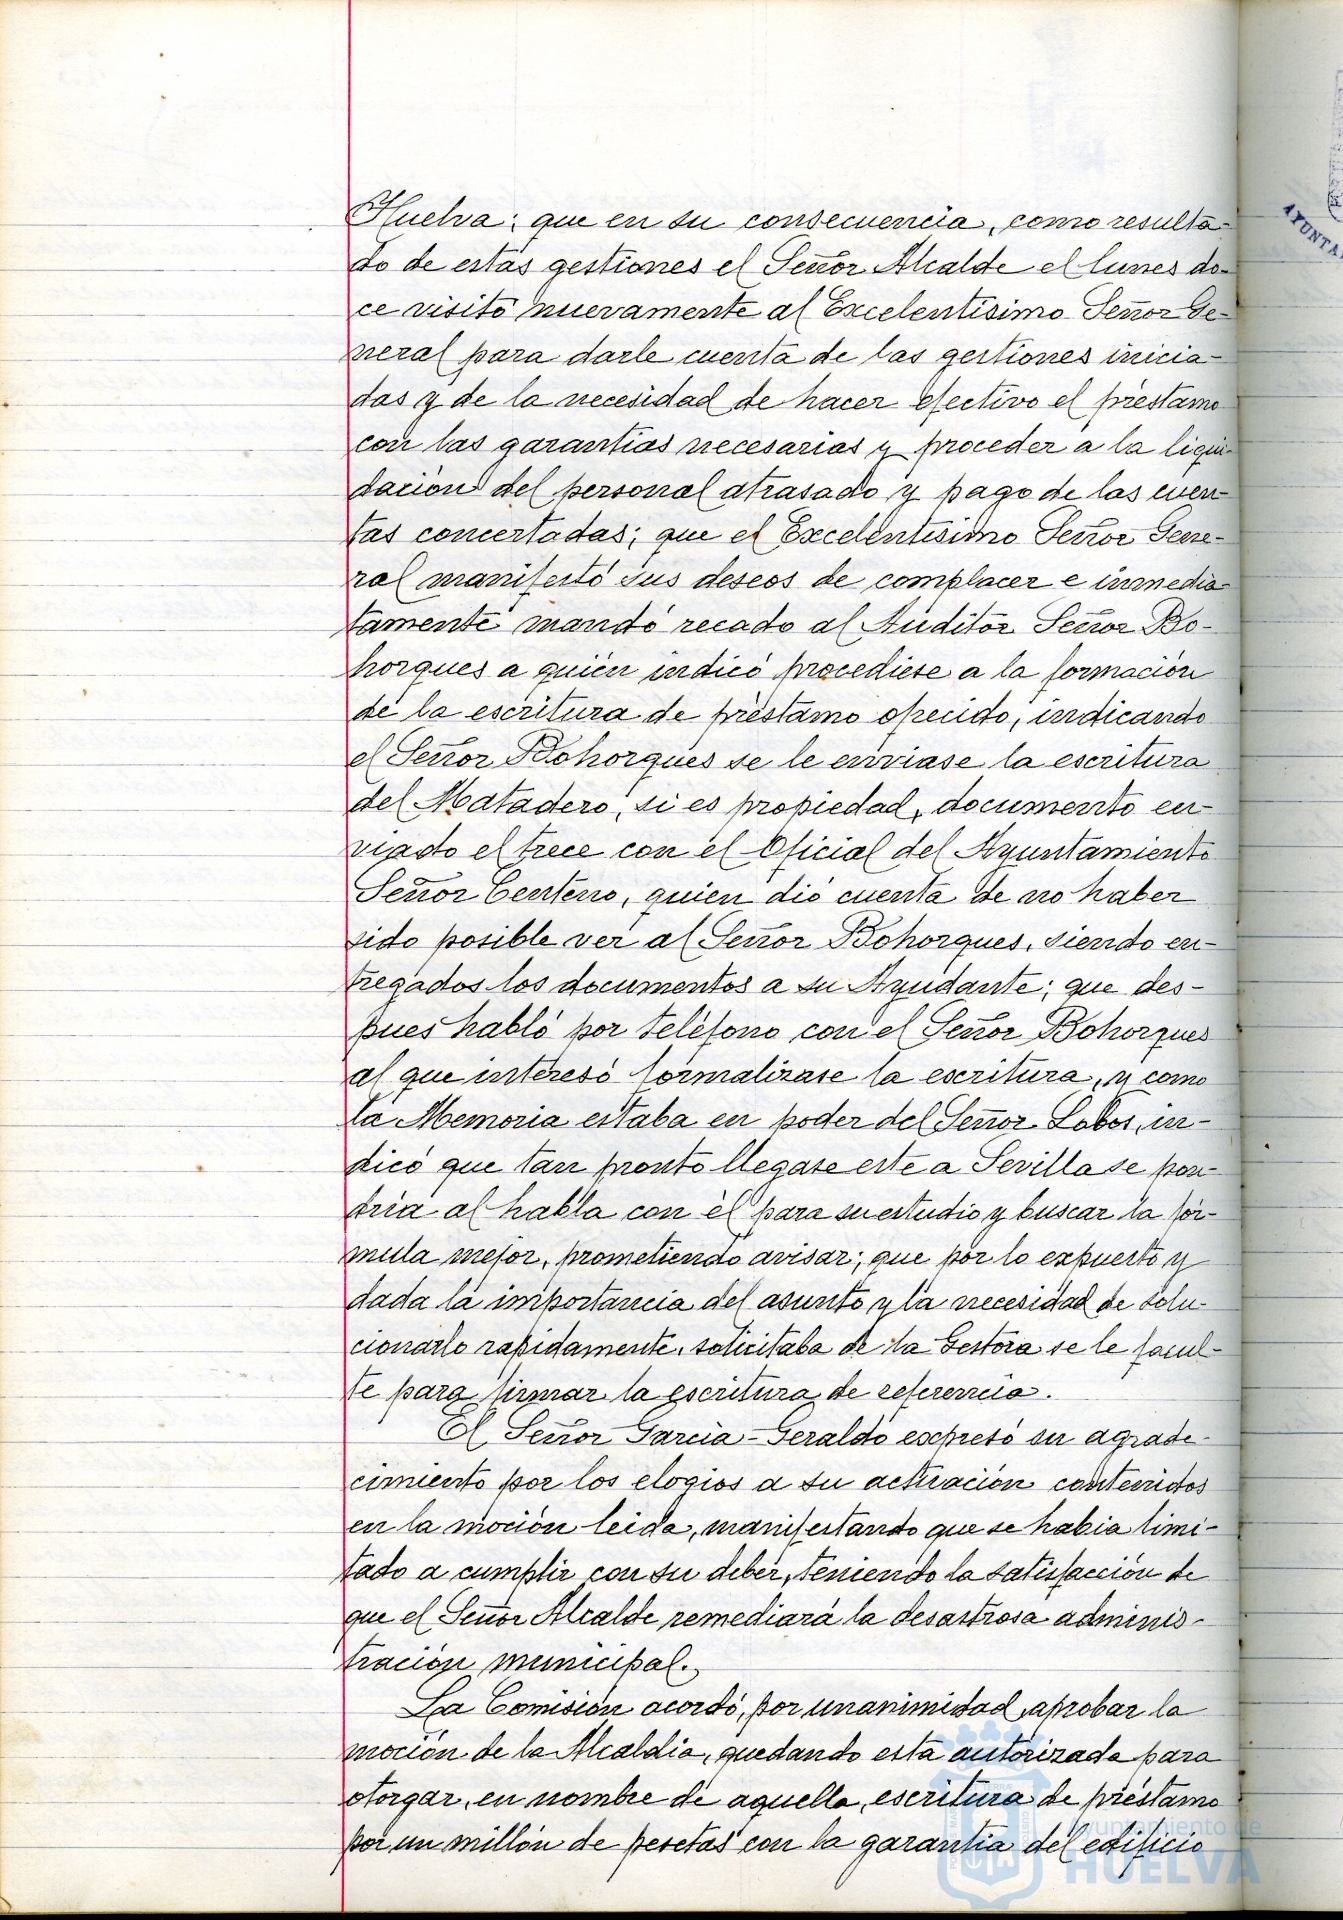 Huelva; que en su consecuencia, como resulta-
do de estas gestiones el Señor Alcalde el lunes do-
ce visitó nuevamente al Excelentisimo Señor Ge-
neral para darle cuenta de las gestiones inicia-
das y de la necesidad de hacer efectivo el préstamo
con las garantias necesarias y proceder a la liqui-
dación del personal atrasado y pago de las cuen-
tas concertadas; que el Excelentisimo Señor Gene-
ral manifestó sus deseos de complacer e inmedia-
tamente mandó recado al Auditor Señor Bo-
horques a quien indicó procediese a la formación
de la escritura de préstamo ofrecido, indicando
el Señor Bohorques se le enviase la escritura
del Matadero, si es propiedad, documento en-
viado el trece con el Oficial del Ayuntamiento
Señor Centeno, quien dió cuenta de no haber
sido posible ver al Señor Bohorques, siendo en-
tregados los documentos a su Ayudante; que des-
pues habló por teléfono con el Señor Bohorques
al que interesó formalizase la escritura, y como
la Memoria estaba en poder del Señor Lobos, in-
dicó que tan pronto llegase este a Sevilla se pon-
dria al habla con él para su estudio y buscar la fór-
mula mejor, prometiendo avisar; que por lo expuesto y
dada la importancia del asunto y la necesidad de solu-
cionarlo rapidamente, solicitaba de la Gestora se le facul-
te para firmar la escritura de referencia.
El Señor Garcia-Geraldo expresó su agrade-
cimiento por los elogios a su actuación contenidos
en la moción leida, manifestando que se habia limi-
tado a cumplir con su deber, teniendo la satisfacción de
que el Señor Alcalde remediará la desastrosa adminis-
tración municipal.
La Comisión acordó, por unanimidad, aprobar la
moción de la Alcaldia, quedando esta autorizada para
otorgar, en nombre de aquella, escritura de préstamo
por un millón de pesetas con la garantia del edificio
Ayuntamiento de
HUELVA
AYUNTA